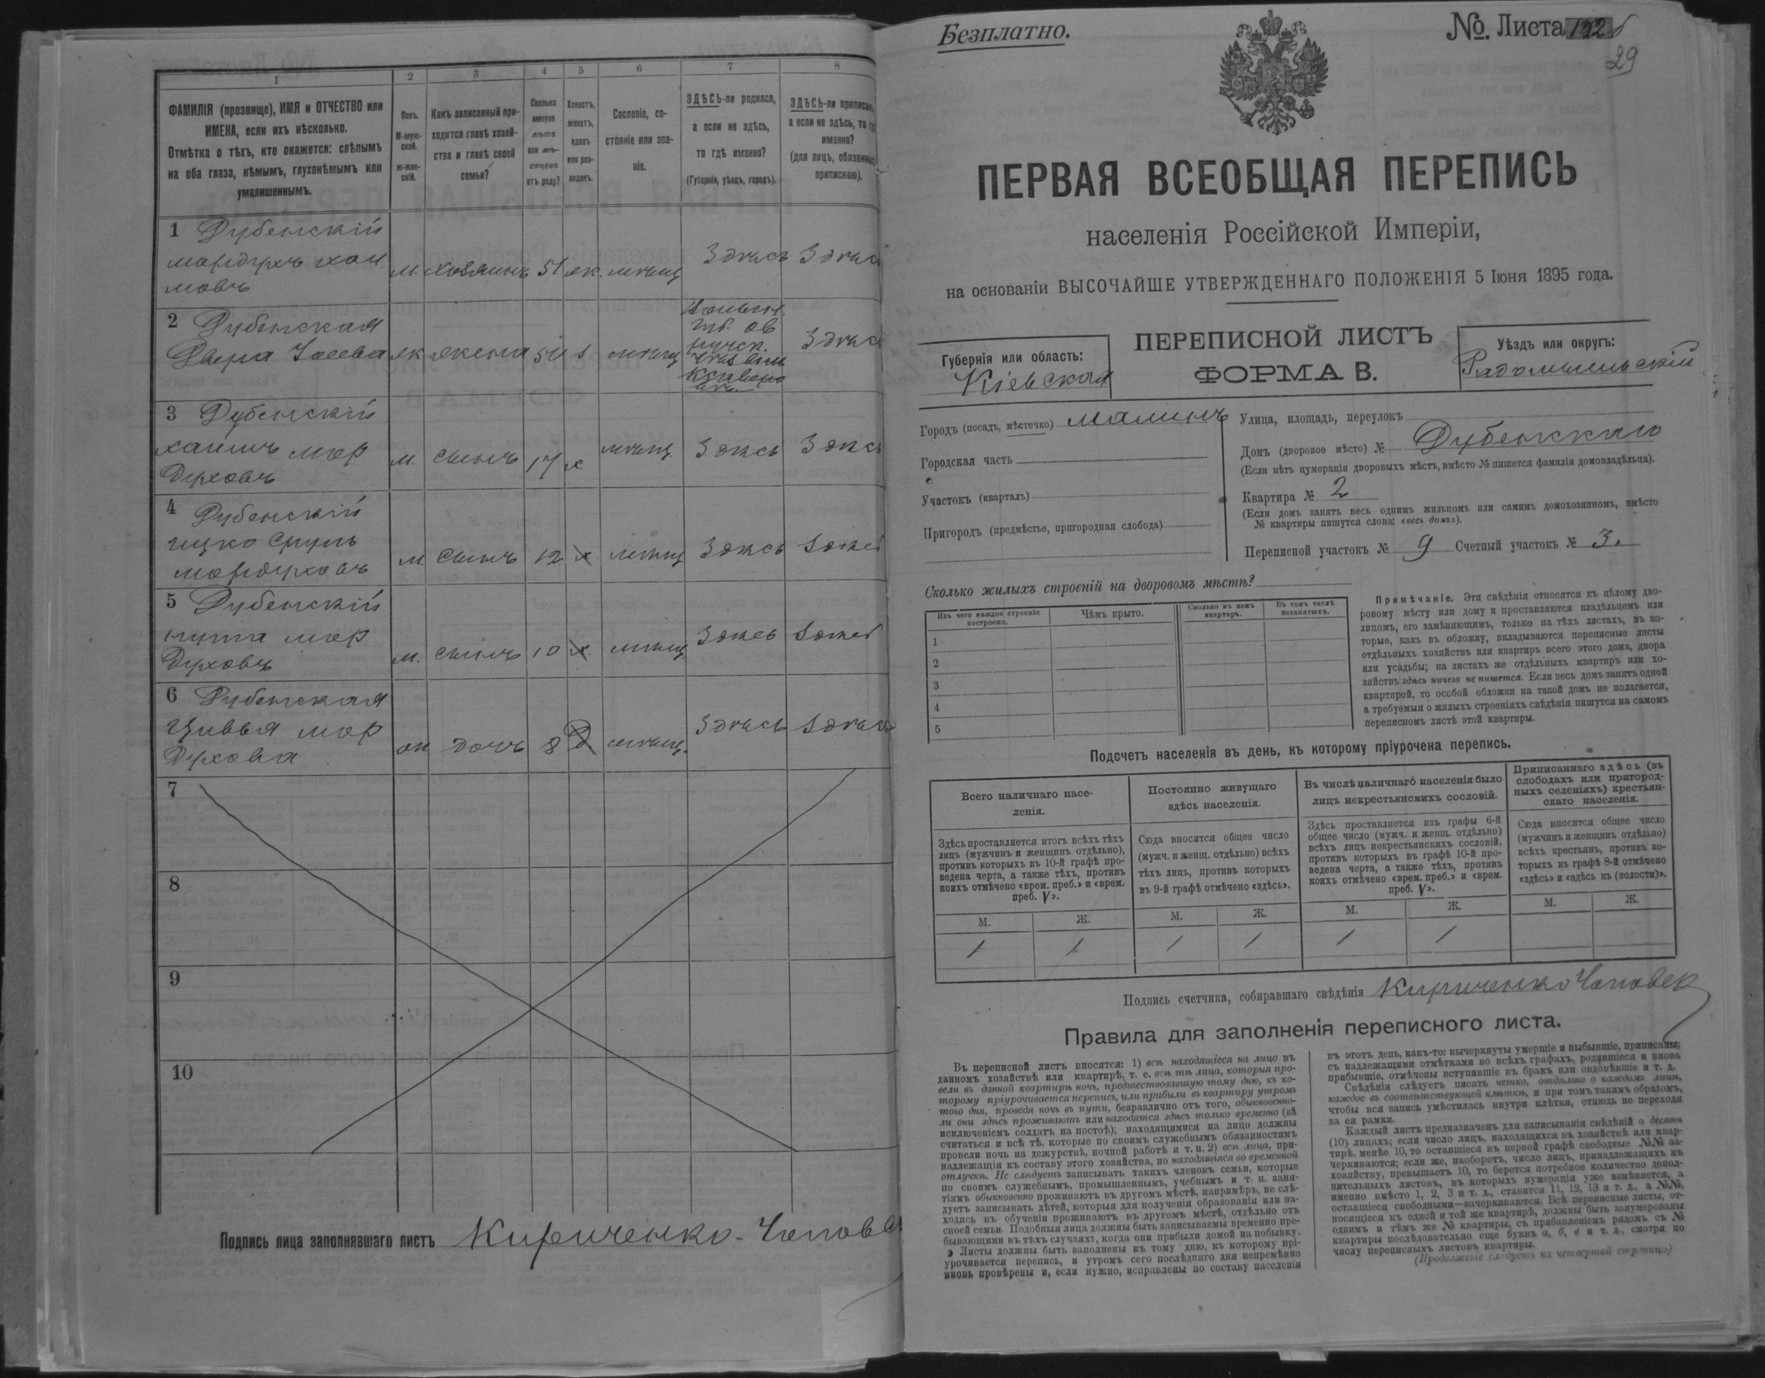 1 2 3 4 5 6 7 8
ФАМИЛІЯ (прозвище), ИМЯ и ОТЧЕСТВО или
ИМЕНА, если ихъ нѣсколько.
Отмѣтка о тѣхъ, кто окажется: слѣпымъ
на оба глаза, нѣмымъ, глухонѣмымъ или
умалишеннымъ.
Полъ.
М-муж-
ской.
ж-жен-
скій.
Какъ записанный при-
ходится главѣ хозяй-
ства и главѣ своей
семьи?
Сколько
минуло
лѣтъ
или мѣ-
сяцевъ
отъ роду?
Холостъ,
женатъ,
вдовъ
или раз-
веденъ.
Сословіе, со-
стояніе или зва-
ніе.
ЗДѢСЬ-ли родился,
а если не здѣсь,
то гдѣ именно?
(Губернія, уѣздъ, городъ).
ЗДѢСЬ-ли приписанъ,
а если не здѣсь, то гдѣ
именно?
(для лицъ, обязанныхъ
припискою).
1 Дубенскій
м хозяинъ 51 мѣщ Здѣсь Здѣсь
2 Дубенская
жена мѣщ Здѣсь
3 Дубенскій
хаимъ мор
духовъ м. сынъ 17 х мѣщ Здѣсь Здѣсь
4 Дубенскій
ицко Сруль
мордуховъ м сынъ 12 х мѣщ Здѣсь Здѣсь
5 Дубенскій
мор
духовъ м. сынъ 10 х мѣщ Здѣсь Здѣсь
6 Дубенская
Цивья мор
духова дочь 8 мѣщ. Здѣсь Здѣсь
7
8
9
10
Подпись лица заполнявшаго листъ Кириченко-Чапов
Безплатно.
№. Листа
29
ПЕРВАЯ ВСЕОБЩАЯ ПЕРЕПИСЬ
населенія Россійской Имперіи,
на основаніи ВЫСОЧАЙШЕ УТВЕРЖДЕННАГО ПОЛОЖЕНІЯ 5 Іюня 1895 года.
Губернія или область:
Кіевская
ПЕРЕПИСНОЙ ЛИСТЪ
ФОРМА В.
Уѣздъ или округъ:
Радомысльскій
Городъ (посадъ, мѣстечко) малинъ
Городская часть
Участокъ (кварталъ)
Пригородъ (предмѣстье, пригородная слобода)
Улица, площадь, переулокъ
Домъ (дворовое мѣсто) № Дубенскаго
(Если нѣтъ нумераціи дворовыхъ мѣстъ, вмѣсто № пишется фамилія домовладѣльца).
Квартира № 2
(Если домъ занятъ весь однимъ жильцомъ или самимъ домохозяиномъ, вмѣсто
№ квартиры пишутся слова: «весь домъ»).
Переписной участокъ № 9 Счетный участокъ № 3.
Сколько жилыхъ строеній на дворовомъ мѣстѣ?
Изъ чего каждое строеніе
построено.
Чѣмъ крыто.
Сколько въ немъ
квартиръ.
Въ томъ числѣ
незанятыхъ.
1
2
3
4
5
Примѣчаніе. Эти свѣдѣнія относятся къ цѣлому дво-
ровому мѣсту или дому и проставляются владѣльцемъ или
лицомъ, его замѣняющимъ, только на тѣхъ листахъ, въ ко-
торые, какъ въ обложку, вкладываются переписные листы
отдѣльныхъ хозяйствъ или квартиръ всего этого дома, двора
или усадьбы; на листахъ же отдѣльныхъ квартиръ или хо-
зяйствъ здѣсь ничего не пишется. Если весь домъ занятъ одной
квартирой, то особой обложки на такой домъ не полагается,
а требуемыя о жилыхъ строеніяхъ свѣдѣнія пишутся на самомъ
переписномъ листѣ этой квартиры.
Подсчетъ населенія въ день, къ которому пріурочена перепись.
Всего наличнаго насе-
ленія.
Здѣсь проставляется итогъ всѣхъ тѣхъ
лицъ (мужчинъ и женщинъ отдѣльно),
противъ которыхъ въ 10-й графѣ про-
ведена черта, а также тѣхъ, противъ
коихъ отмѣчено «врем. преб.» и «врем.
преб. V».
Постоянно живущаго
здѣсь населенія.
Сюда вносится общее число
(мужч. и женщ. отдѣльно) всѣхъ
тѣхъ лицъ, противъ которыхъ
въ 9-й графѣ отмѣчено «здѣсь».
Въ числѣ наличнаго населенія было
лицъ некрестьянскихъ сословій.
Здѣсь проставляется изъ графы 6-й
общее число (мужч. и женщ. отдѣльно)
всѣхъ лицъ некрестьянскихъ сословій,
противъ которыхъ въ графѣ 10-й про-
ведена черта, а также тѣхъ, противъ
коихъ отмѣчено «врем. преб.» и «врем.
преб. V».
Приписаннаго здѣсь (въ
слободахъ или пригород-
ныхъ селеніяхъ) крестьян-
скаго населенія.
Сюда вносится общее число
(мужчинъ и женщинъ отдѣльно)
всѣхъ крестьянъ, противъ ко-
торыхъ въ графѣ 8-й отмѣчено
«здѣсь» и «здѣсь къ (волости)».
М. Ж. М. Ж. М. Ж. М. Ж.
1 1 1 1 1 1
Подпись счетчика, собиравшаго свѣдѣнія Кириченко Чаповск
Правила для заполненія переписного листа.
Въ переписной листъ вносятся: 1) всѣ находящіеся на лицо въ
данномъ хозяйствѣ или квартирѣ, т. е. всѣ тѣ лица, которыя про-
вели въ данной квартирѣ ночь, предшествовавшую тому дню, къ ко-
торому пріурочивается перепись, или прибыли въ квартиру утромъ
того дня, проведя ночь въ пути, безразлично отъ того, обыкновенно-
ли они здѣсь проживаютъ или находятся здѣсь только временно (за
исключеніемъ солдатъ на постоѣ); находящимися на лицо должны
считаться и всѣ тѣ, которые по своимъ служебнымъ обязанностямъ
провели ночь на дежурствѣ, ночной работѣ и т. п. 2) всѣ лица, при-
надлежащія къ составу этого хозяйства, но находящіяся во временной
отлучкѣ. Не слѣдуетъ записывать такихъ членовъ семьи, которые
по своимъ служебнымъ, промышленнымъ, учебнымъ и т. п. заня-
тіямъ обыкновенно проживаютъ въ другомъ мѣстѣ, напримѣръ, не слѣ-
дуетъ записывать дѣтей, которыя для полученія образованія или на-
ходясь въ обученіи проживаютъ въ другомъ мѣстѣ, отдѣльно отъ
своей семьи. Подобныя лица должны быть записываемы временно пре-
бывающими въ тѣхъ случаяхъ, когда они прибыли домой на побывку.
Листы должны быть заполнены къ тому дню, къ которому прі-
урочивается перепись, и утромъ сего послѣдняго дня непремѣнно
вновь провѣрены и, если нужно, исправлены по составу населенія
въ этотъ день, какъ-то: вычеркнуты умершіе и выбывшіе, приписаны,
съ надлежащими отмѣтками во всѣхъ графахъ, родившіеся и вновь
прибывшіе, отмѣчены вступившіе въ бракъ или овдовѣвшіе и т. д.
Свѣдѣнія слѣдуетъ писать четко, отдѣльно о каждомъ лицѣ,
каждое въ соотвѣтствующей клѣткѣ, и при томъ такимъ образомъ,
чтобы вся запись умѣстилась внутри клѣтки, отнюдь не переходя
за ея рамки.
Каждый листъ предназначенъ для записыванія свѣдѣній о десяти
(10) лицахъ; если число лицъ, находящихся въ хозяйствѣ или квар-
тирѣ, менѣе 10, то оставшіеся въ первой графѣ свободные №№ за-
черкиваются; если же, наоборотъ, число лицъ, принадлежащихъ къ
хозяйству, превышаетъ 10, то берется потребное количество допол-
нительныхъ листовъ, въ которыхъ нумерація уже измѣняется, а
именно вмѣсто 1, 2, 3 и т. д., ставится 11, 12, 13 и т. д., а №№,
оставшіеся свободными—зачеркиваются. Всѣ переписные листы, от-
носящіеся къ одной и той же квартирѣ, должны быть занумерованы
однимъ и тѣмъ же № квартиры, съ прибавленіемъ рядомъ съ №
квартиры послѣдовательно еще буквъ а, б, в и т. д., смотря по
числу переписныхъ листовъ квартиры.
(Продолженіе слѣдуетъ на четвертой страницѣ)